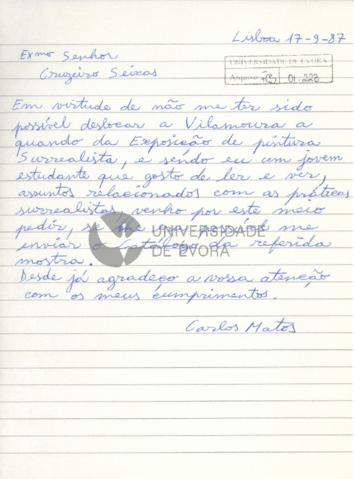 Lisboa 17-9-87
Exmo Senhor
Cruzeiro Seixas
UNIVERSIDADE DE ÉVORA
Arquivo CS 01-223
Em virtude de não me ter sido
possível deslocar a Vilamoura a
quando da Exposição de pintura
Surrealista, e sendo eu um jovem
estudante que gosto de ler e ver,
assuntos relacionados com as práticas
surrealistas, venho por este meio
pedir, se me
enviar o Catálogo da referida
mostra.
Desde já agradeço a vossa atenção
com os meus cumprimentos.
Carlos Matos
UNIVERSIDADE
DE ÉVORA
UNIVERSIDADE
DE ÉVORA